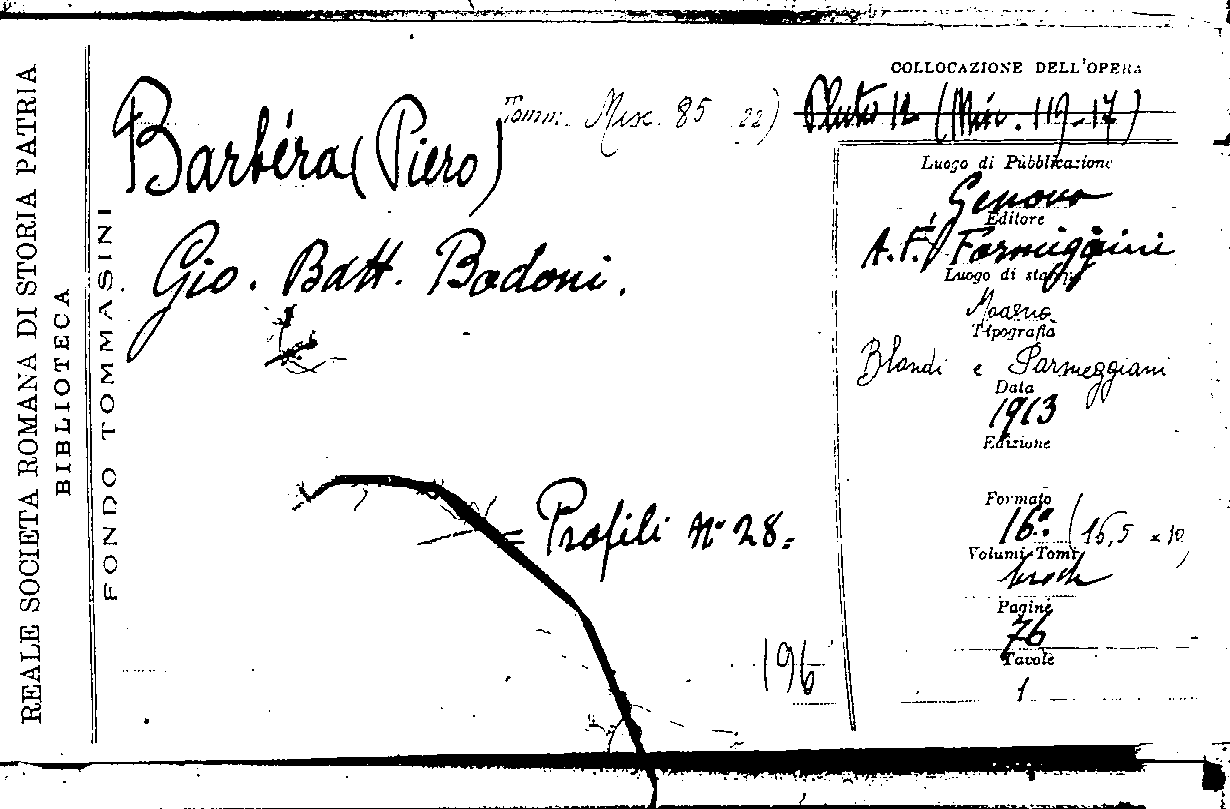 REALE SOCIETA ROMANA DI STORIA PATRIA
BIBLIOTECA
FONDO TOMMASINI
COLLOCAZIONE DELL'OPERA
Tomm. Misc. 85 22) Pluto 12 (Min. 119-17)
Barbéra (Piero)
Gio. Batt. Bodoni.
Luogo di Pubblicazione
Genova
Editore
A. F. Formiggini
Luogo di stampa
Tipografia
Blondi e Parmeggiani
Data
1913
Edizione
= Profili N° 28.=
Formato
16° (16,5 × 10)
Volumi-Tomi
broch
Pagine
76
Tavole
1
196